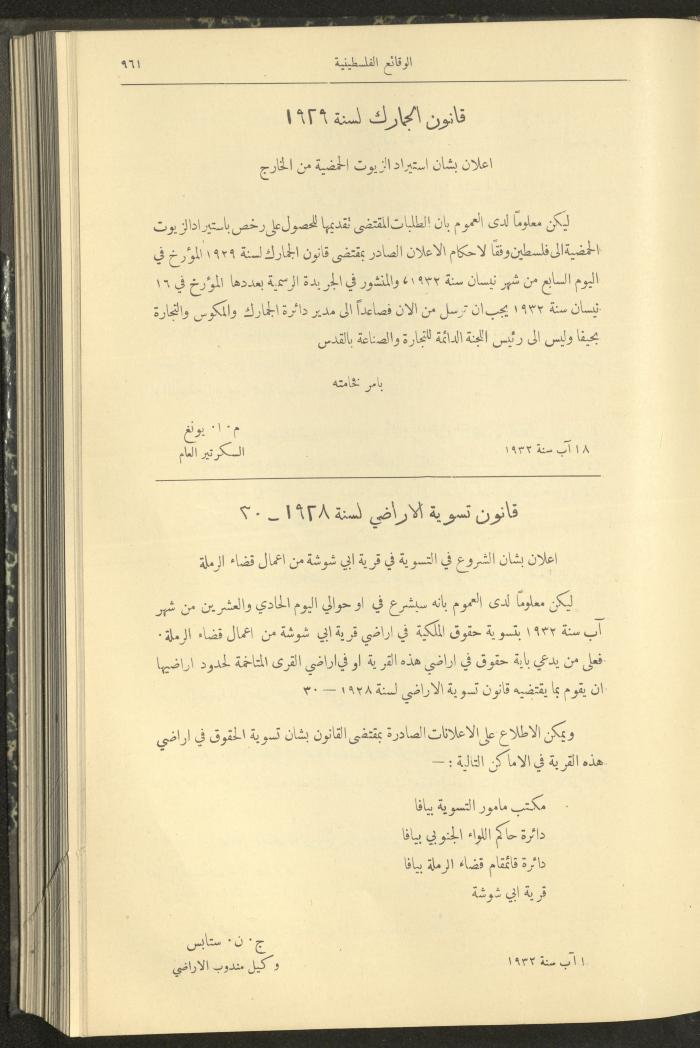 الوقائع الفلسطينية ٩٦١
قانون الجمارك لسنة ١٩٢٩
اعلان بشان استيراد الزيوت الحمضية من الخارج
ليكن معلومًا لدى العموم بان الطلبات المقتضى تقديمها للحصول على رخص باستيراد الزيوت
الحمضية الى فلسطين وفقًا لاحكام الاعلان الصادر بمقتضى قانون الجمارك لسنة ١٩٢٩ المؤرخ في
اليوم السابع من شهر نيسان سنة ١٩٣٢، والمنشور في الجريدة الرسمية بعددها المؤرخ في ١٦
نيسان سنة ١٩٣٢ يجب ان ترسل من الان فصاعداً الى مدير دائرة الجمارك والمكوس والتجارة
بحيفا وليس الى رئيس اللجنة الدائمة للتجارة والصناعة بالقدس
بامر فخامته
م٠ ا٠ يونغ
السكرتير العام
١٨ آب سنة ١٩٣٢
قانون تسوية الاراضي لسنة ١٩٢٨ – ٣٠
اعلان بشان الشروع في التسوية في قرية ابي شوشة من اعمال قضاء الرملة
ليكن معلومًا لدى العموم بانه سيشرع في او حوالي اليوم الحادي والعشرين من شهر
آب سنة ١٩٣٢ بتسوية حقوق الملكية في اراضي قرية ابي شوشة من اعمال قضاء الرملة٠
فعلى من يدعي باية حقوق في اراضي هذه القرية او في اراضي القرى المتاخمة لحدود اراضيها
ان يقوم بما يقتضيه قانون تسوية الاراضي لسنة ١٩٢٨ – ٣٠
ويمكن الاطلاع على الاعلانات الصادرة بمقتضى القانون بشان تسوية الحقوق في اراضي
هذه القرية في الاماكن التالية : –
مكتب مامور التسوية بيافا
دائرة حاكم اللواء الجنوبي بيافا
دائرة قائمقام قضاء الرملة بيافا
قرية ابي شوشة
ج٠ ن٠ ستابس
وكيل مندوب الاراضي
١ آب سنة ١٩٣٢